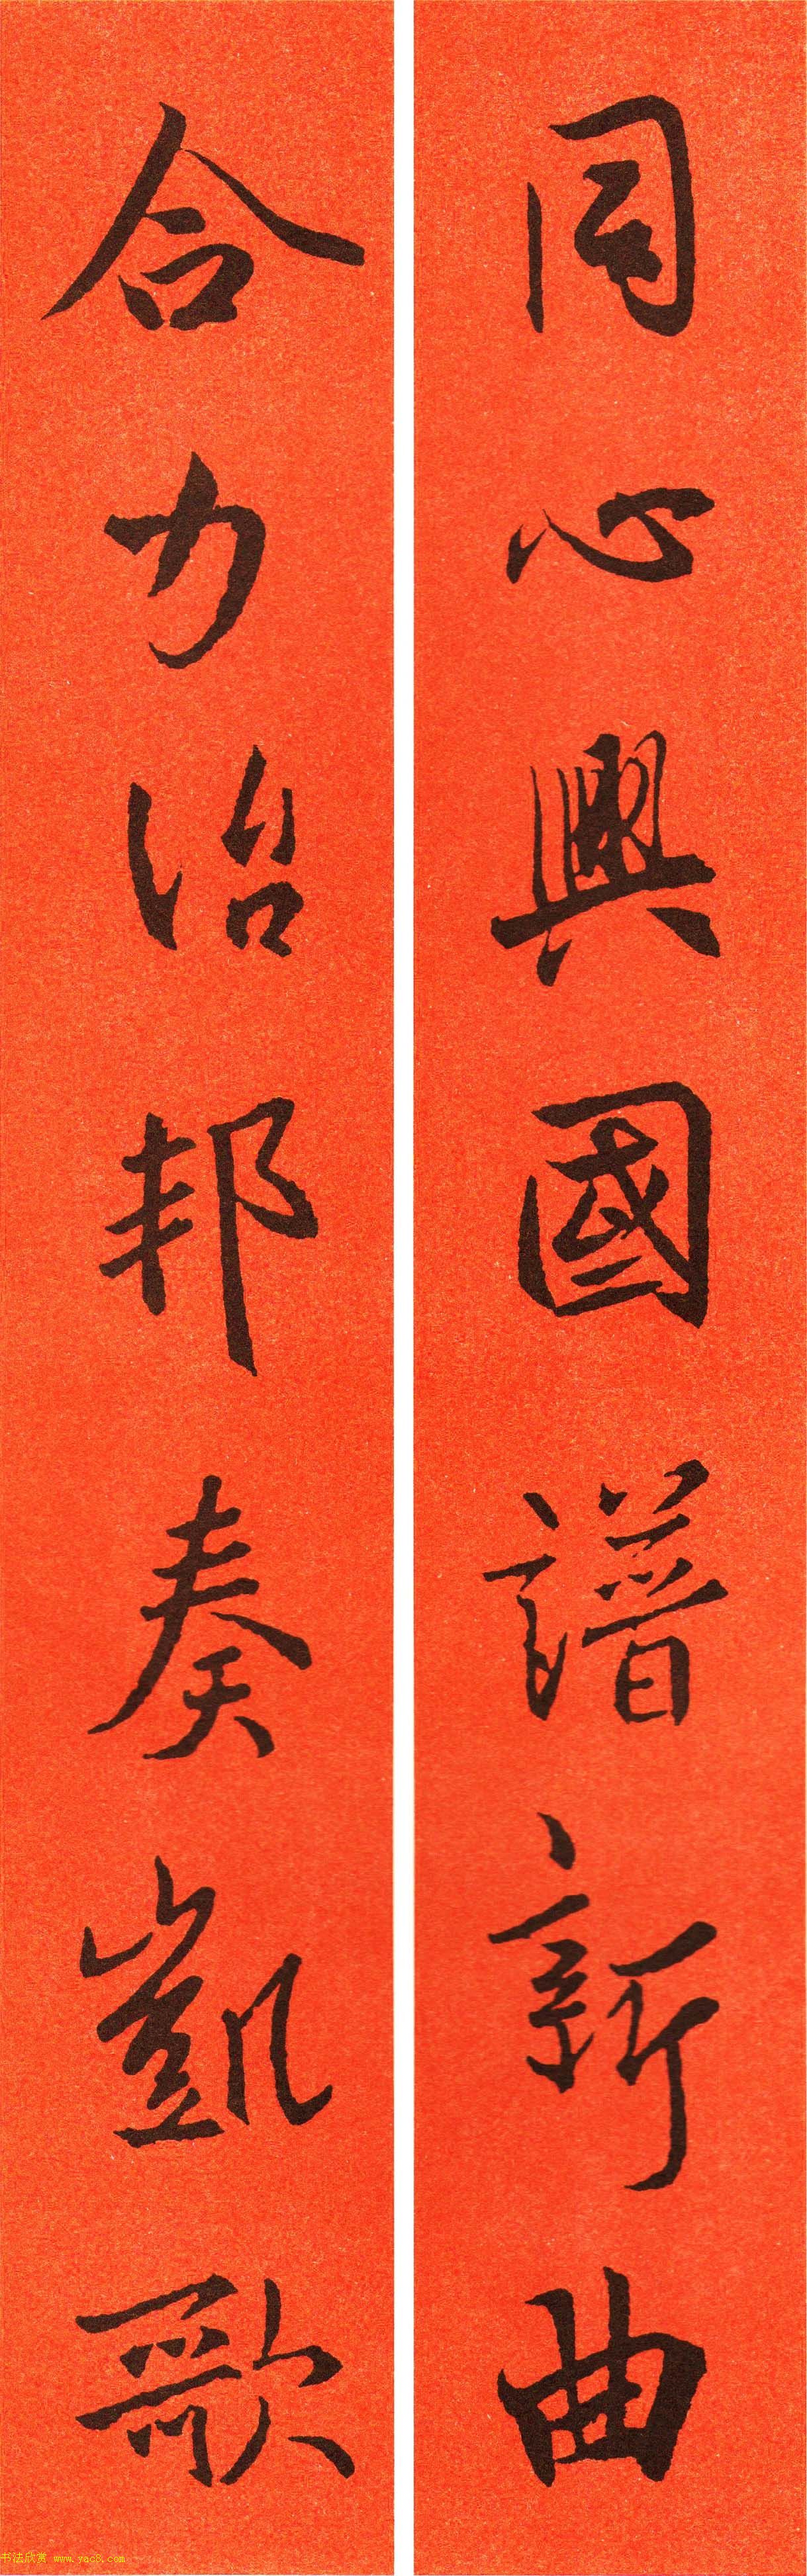 同心興國譜新曲
合力治邦奏凱歌
书法欣赏 www.yac8.com